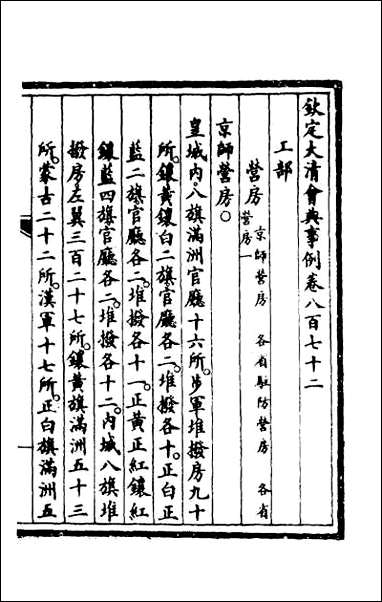 欽定大清會典事例卷八百七十二
工部
營房 京師營房 各省駐防營房 各省
營房一
京師營房○
皇城內八旗滿洲官廳十六所。步軍堆撥房九十
所。鑲黃鑲白二旗官廳各二。堆撥各十。正白正
藍二旗官廳各二。堆撥各十一。正黃正紅鑲紅
鑲藍四旗官廳各二。堆撥各十二。內城八旗堆
撥房左翼三百二十七所。鑲黃旗滿洲五十三
所。蒙古二十二所。漢軍十七所。正白旗滿洲五